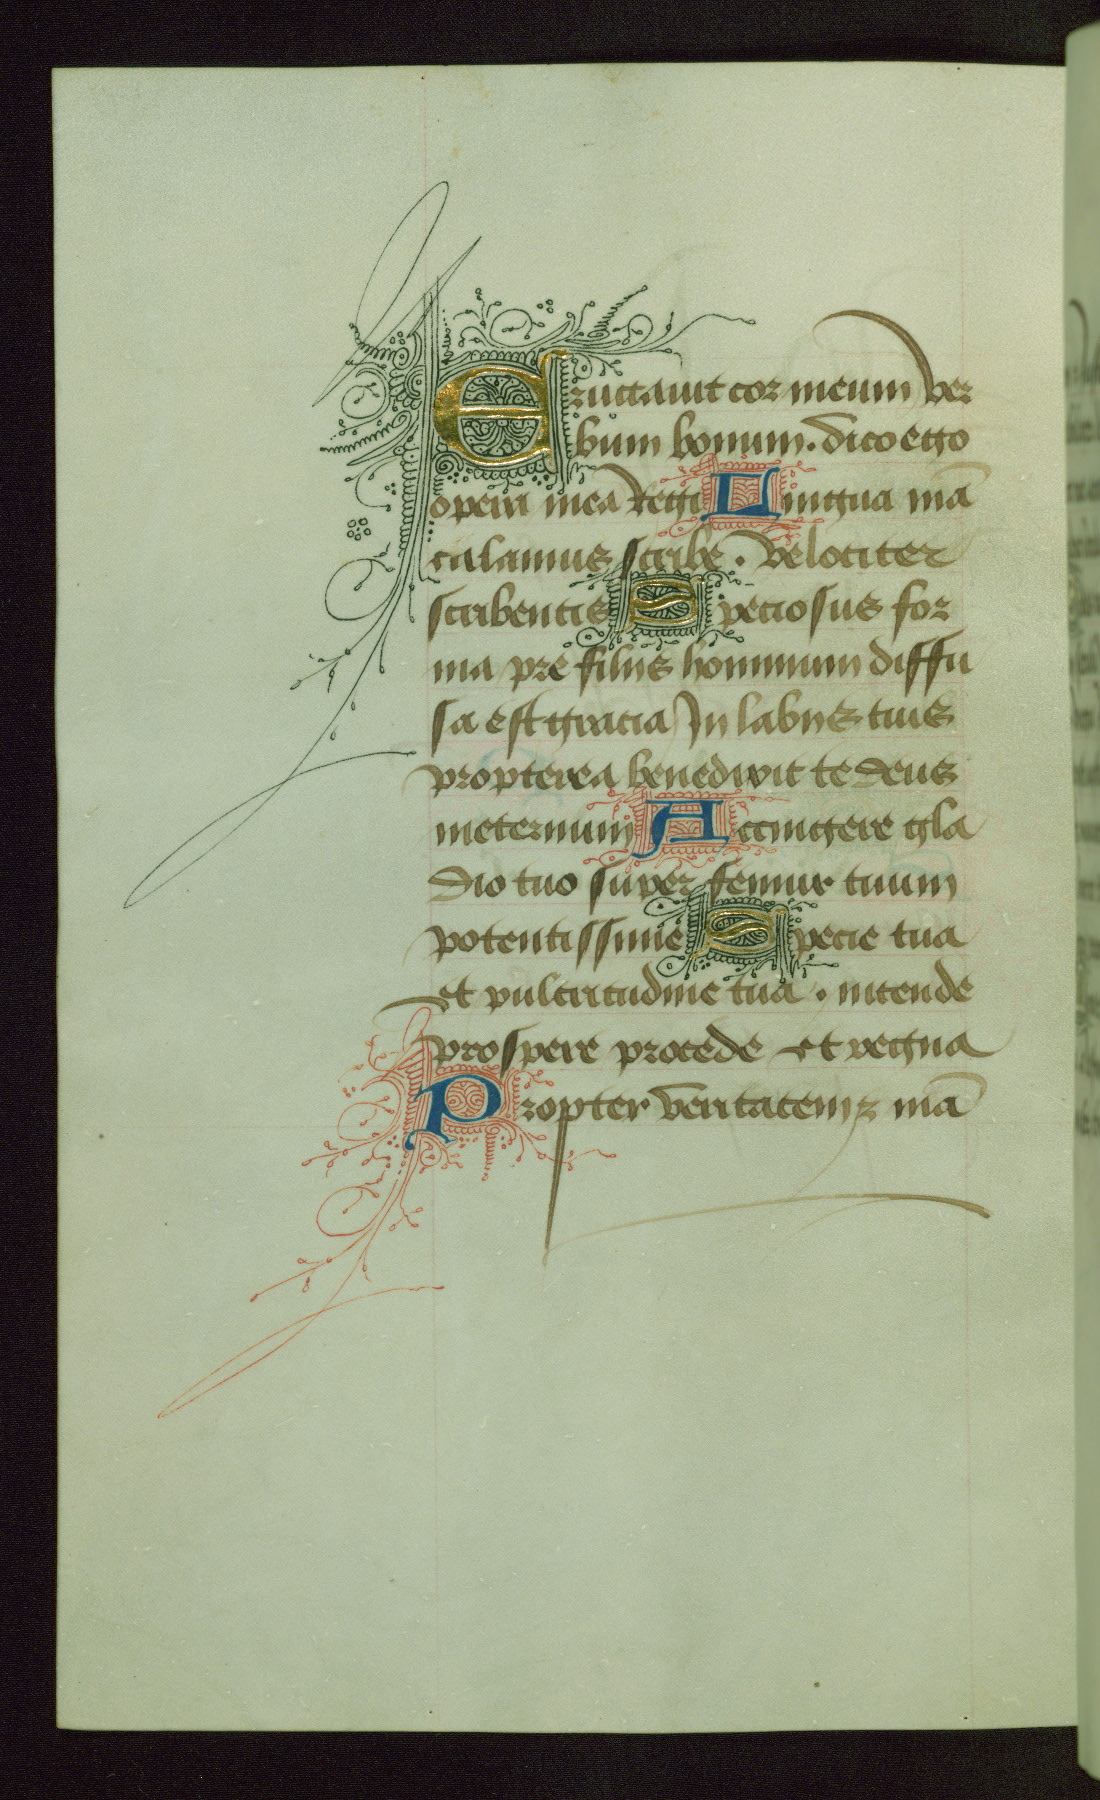 Eructauit cor meum ver
bum bonum. dico ego
opera mea Regi Lingua mā
calamus scribe. velociter
scribentis Speciosus for
ma pre filiis hominum diffu
sa est gracia In labiis tuis
propterea benedixit te deus
ineternum Accingere gla
dio tuo super femur tuum
potentissime Specie tua
et pulcritudine tua. intende
prospere procede et regna
Propter veritatem mā